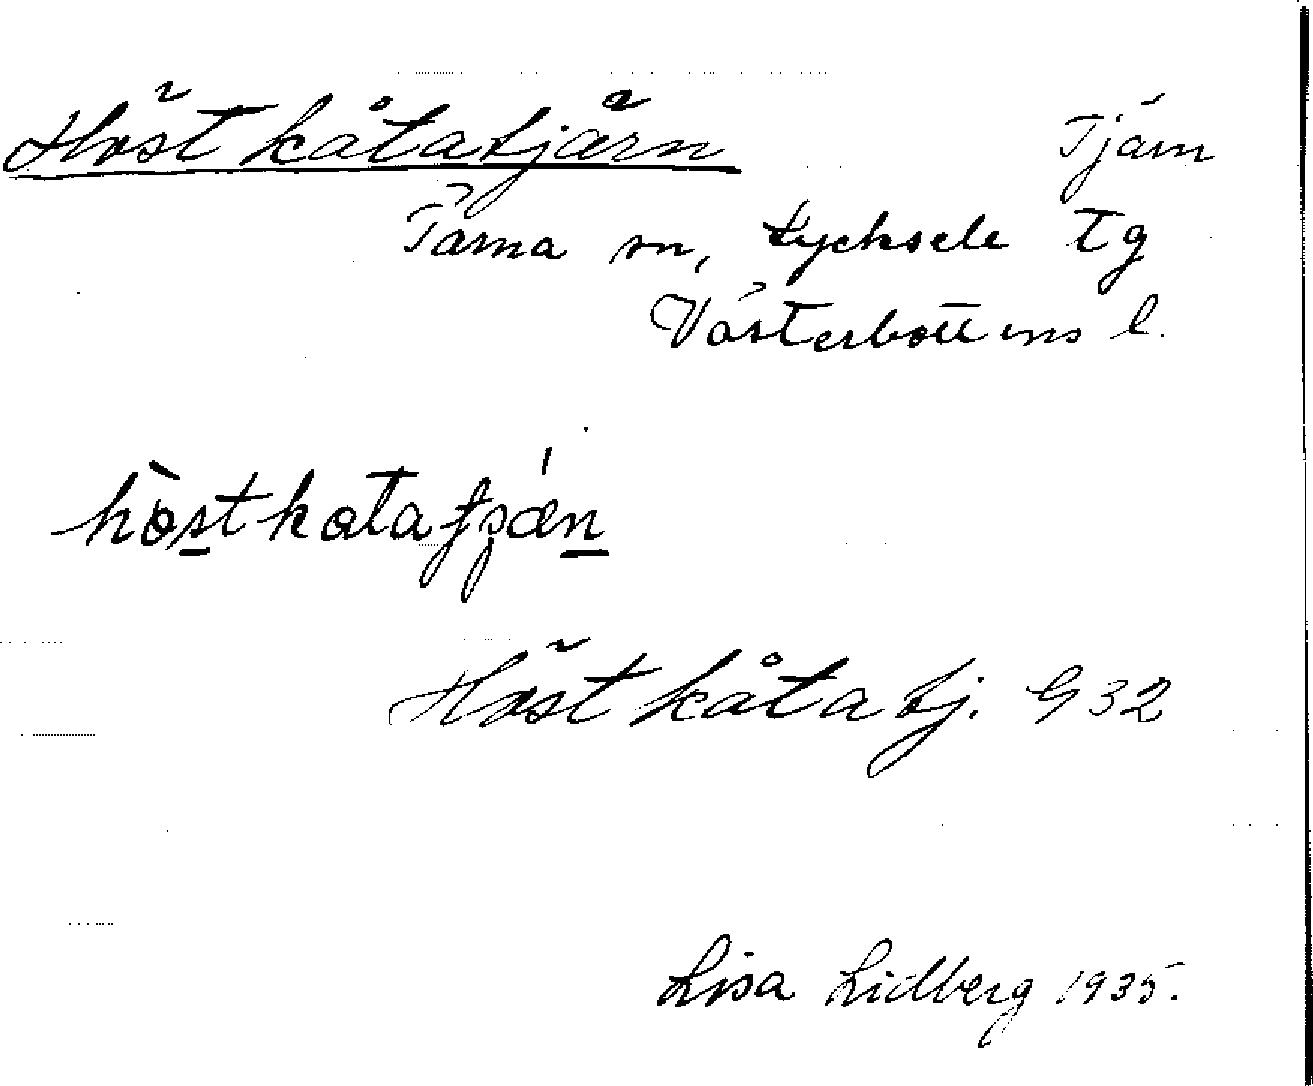 Höstkåtatjärn Tjärn
Tärna sn, Lycksele tg
Västerbottens l.
hòstkatatjæ̀n
Höstkåtatj. G 32
Lisa Lidberg 1935.